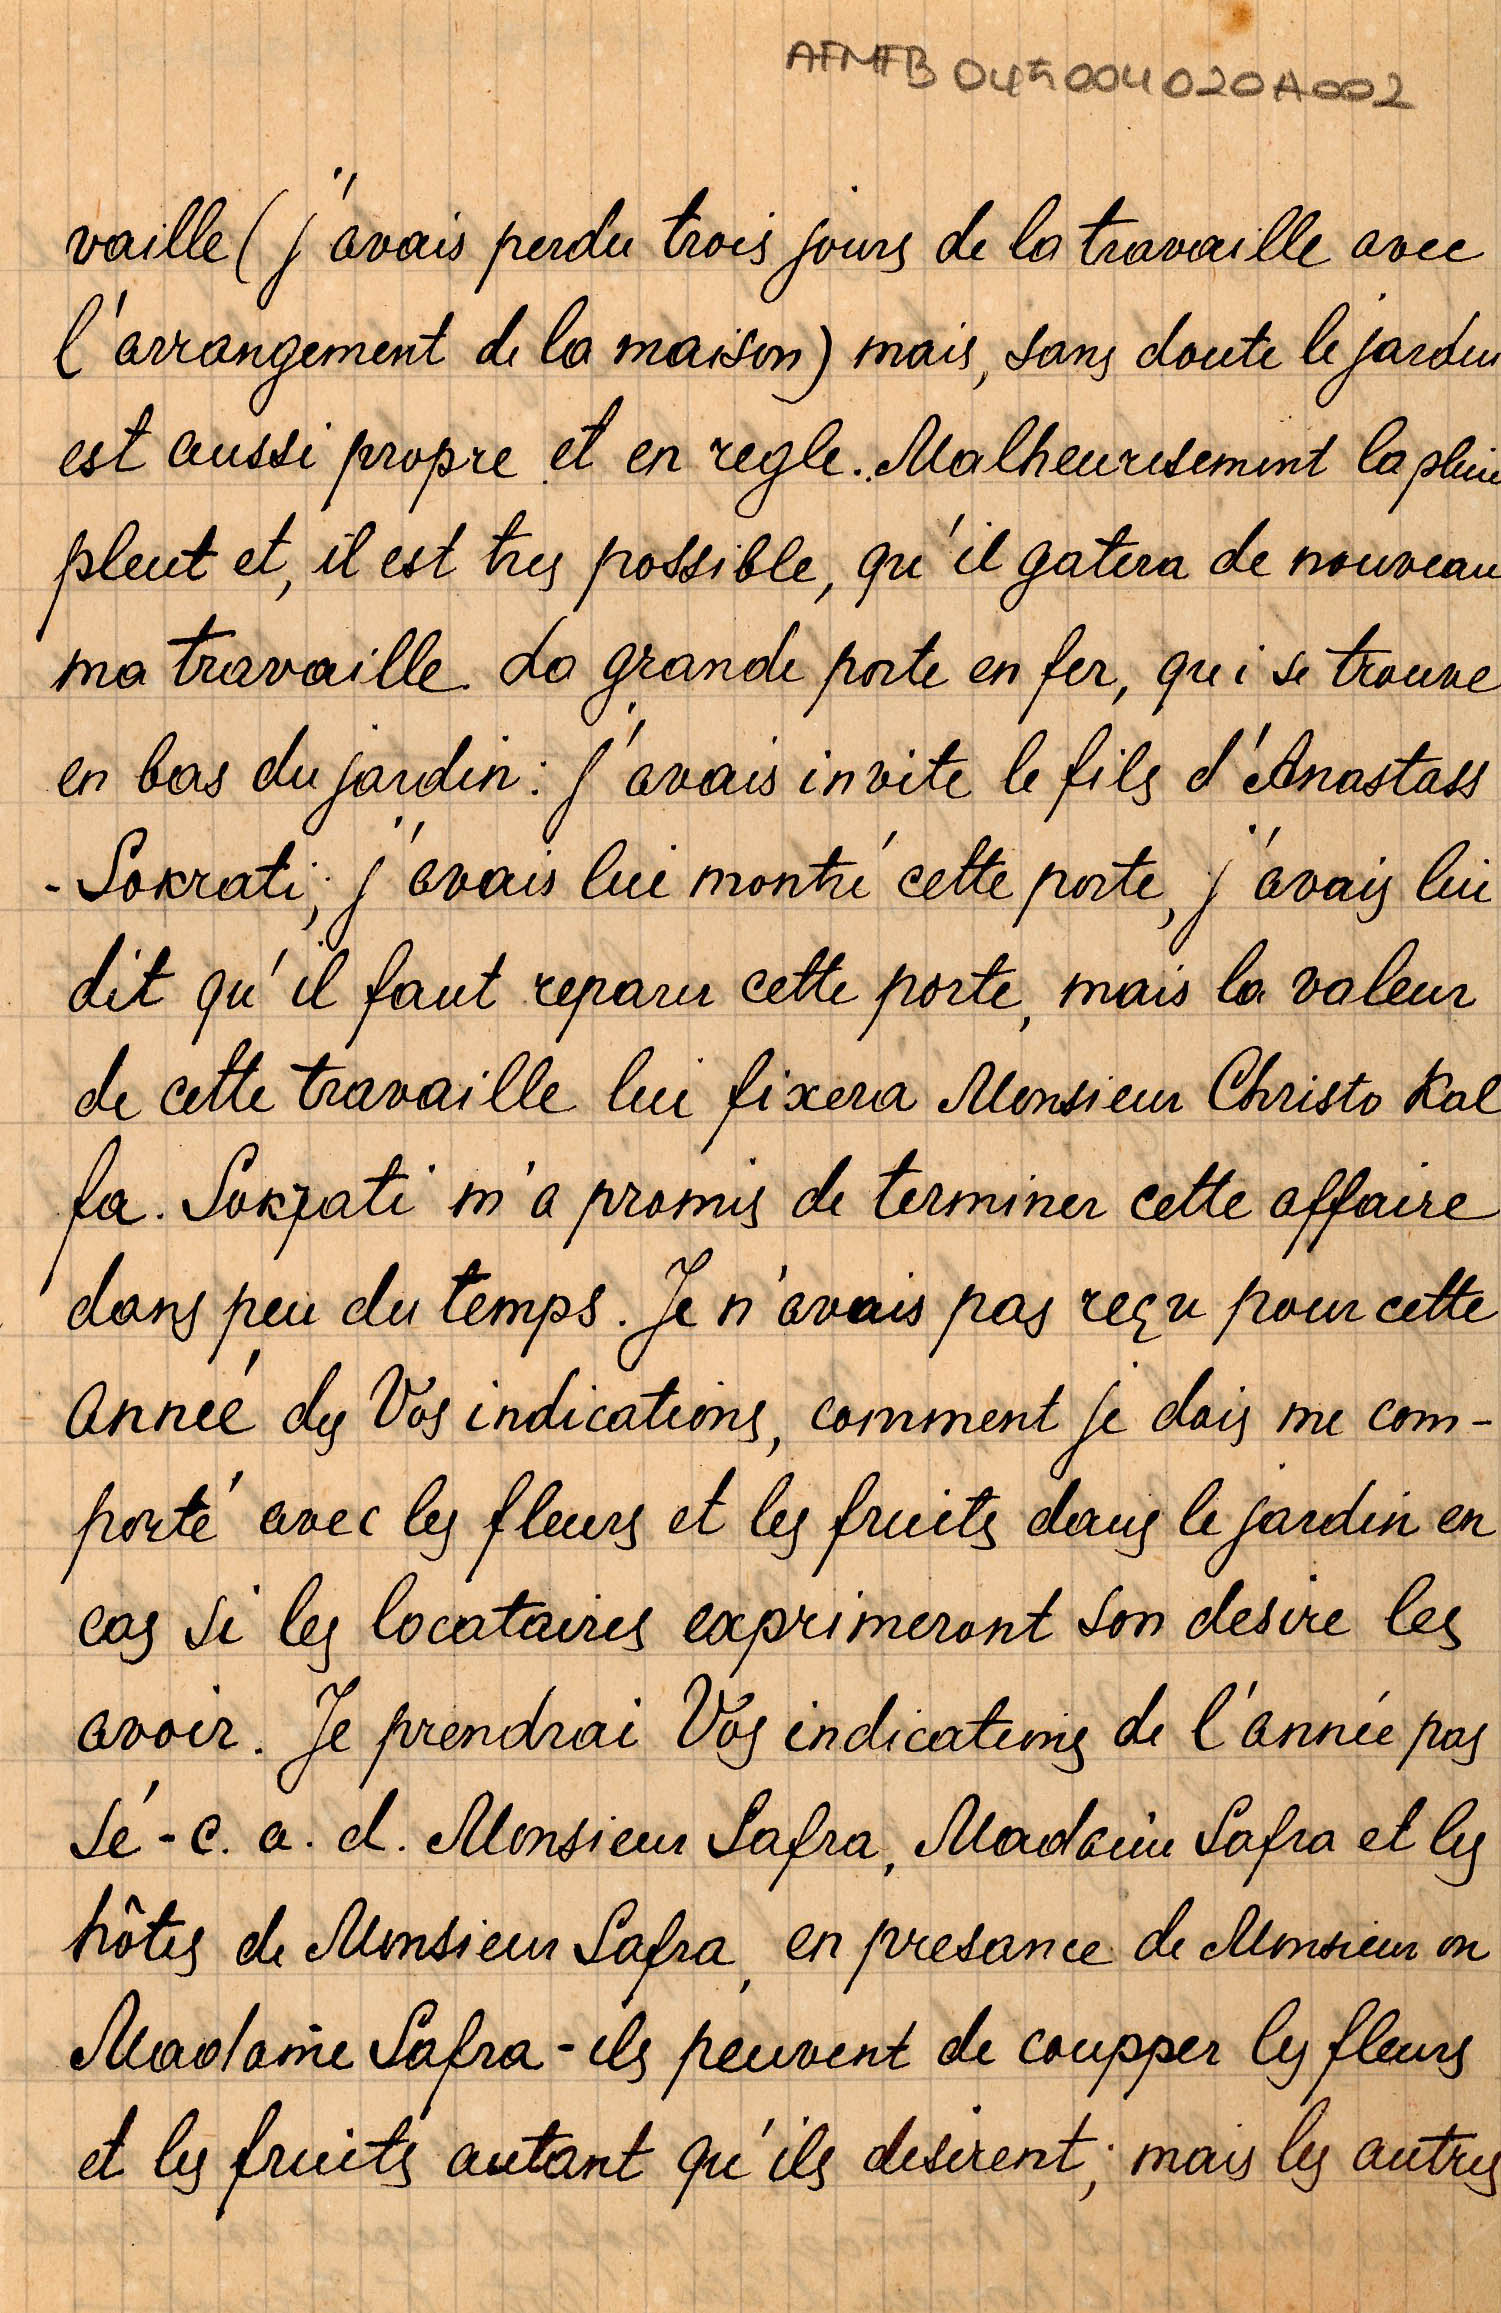 AFMFB 04th004020A002
vaille (j'avais perdu trois jours de la travaille avec
l'arrangement de la maison) mais, sans doute le jardin
est aussi propre et en regle. Malheuresement la pluie
pleut et, il est tres possible, qu'il gatera de nouveau
ma travaille. La grande porte en fer, qui se trouve
en bas du jardin: j'avais invite le fils d'Anastass
-Sokrati; j'avais lui montré cette porte, j'avais lui
dit qu'il faut reparer cette porte, mais la valeur
de cette travaille lui fixera Monsieur Christo Kal
fa. Sokrati m'a promis de terminer cette affaire
dans peu du temps. Je n'avais pas reçu pour cette
anneé des Vos indications, comment je dois me com-
porté avec les fleurs et les fruits dans le jardin en
cas si les locataires exprimeront son desire les
avoir. Je prendrai Vos indications de l'année pas
sé - c. a. d. Monsieur Safra, Madame Safra et les
hôtes de Monsieur Safra, en presance de Monsieur ou
Madame Safra - ils peuvent de coupper les fleurs
et les fruits autant qu'ils desirent; mais les autres